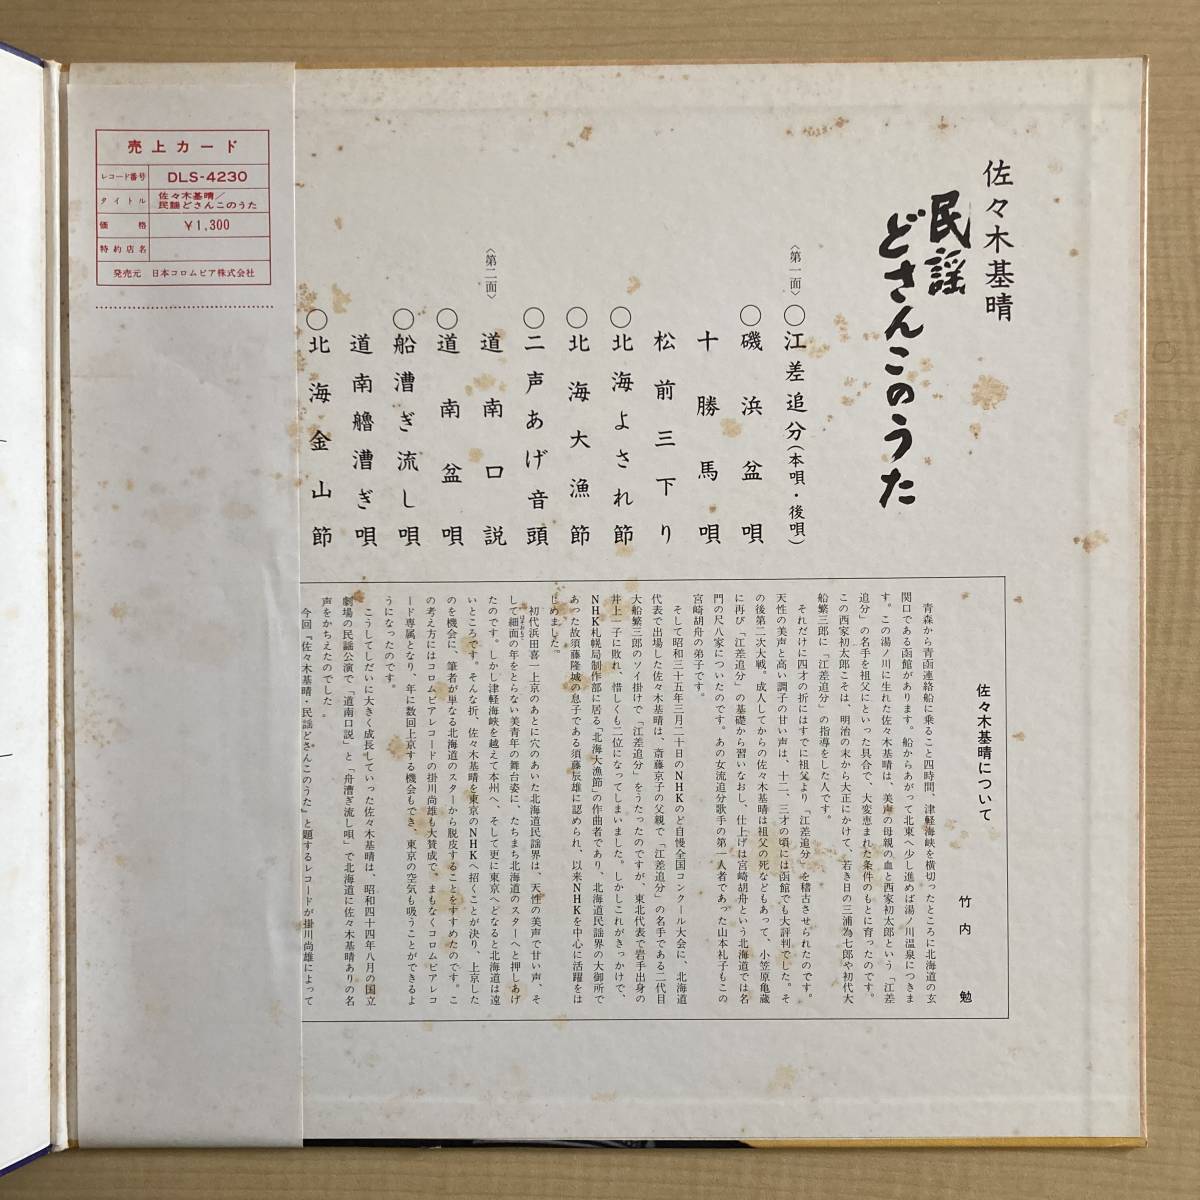 佐々木基晴
民謡
どさんこのうた
〈第一面〉
○江差追分(本唄・後唄)
○磯浜盆唄
十勝馬唄
松前三下り
○北海よされ節
○北海大漁節
○二声あげ音頭
〈第二面〉
道南口説
○道南盆唄
○船漕ぎ流し唄
道南艪漕ぎ唄
○北海金山節
佐々木基晴について
竹内 勉
青森から青函連絡船に乗ること四時間、津軽海峡を横切ったところに北海道の玄
関口である函館があります。船からあがって北東へ少し進めば湯ノ川温泉につきま
す。この湯ノ川に生れた佐々木基晴は、美声の母親の血と西家初太郎という「江差
追分」の名手を祖父にといった具合で、大変恵まれた条件のもとに育ったのです。
この西家初太郎こそは、明治の末から大正にかけて、若き日の三浦為七郎や初代大
船繁三郎に「江差追分」の指導をした人です。
それだけに四才の折にはすでに祖父より「江差追分」を稽古させられたのです。
天性の美声と高い調子の甘い声は、十二、三才の頃には函館でも大評判でした。そ
の後第二次大戦。成人してからの佐々木基晴は祖父の死などもあって、小笠原亀蔵
に再び「江差追分」の基礎から習いなおし、仕上げは宮崎胡舟という北海道では名
門の尺八家についたのです。あの女流追分歌手の第一人者であった山本礼子もこの
宮崎胡舟の弟子です。
そして昭和三十五年三月二十日のNHKのど自慢全国コンクール大会に、北海道
代表で出場した佐々木基晴は、斎藤京子の父親で「江差追分」の名手である二代目
大船繁三郎のソイ掛けで「江差追分」をうたったのですが、東北代表で岩手出身の
井上一子に敗れ、惜しくも二位になってしまいました。しかしこれがきっかけで、
NHK札幌局制作部に居る「北海大漁節」の作曲者であり、北海道民謡界の大御所で
あった故須藤隆城の息子である須藤辰雄に認められ、以来NHKを中心に活躍をは
じめました。
初代浜田喜一上京のあとに穴のあいた北海道民謡界は、天性の美声で甘い声、そ
して細面の年をとらない美青年の舞台姿に、たちまち北海道のスターへと押しあげ
たのです。しかし津軽海峡を越えて本州へ、そして更に東京へとなると北海道は遠
いところです。そんな折、佐々木基晴を東京のNHKへ招くことが決り、上京した
のを機会に、筆者が単なる北海道のスターから脱皮することをすすめたのです。こ
の考え方にはコロムビアレコードの掛川尚雄も大賛成で、まもなくコロムビアレコ
ード専属となり、年に数回上京する機会もでき、東京の空気も吸うことができるよ
うになったのです。
こうしてしだいに大きく成長していった佐々木基晴は、昭和四十四年八月の国立
劇場の民謡公演で「道南口説」と「舟漕ぎ流し唄」で北海道に佐々木基晴ありの名
声をかちえたのでした。
今回『佐々木基晴・民謡どさんこのうた』と題するレコードが掛川尚雄によって
売上カード
レコード番号 DLS-4230
タイトル 佐々木基晴/
民謡どさんこのうた
価格 ¥1,300
特約店名
発売元 日本コロムビア株式会社